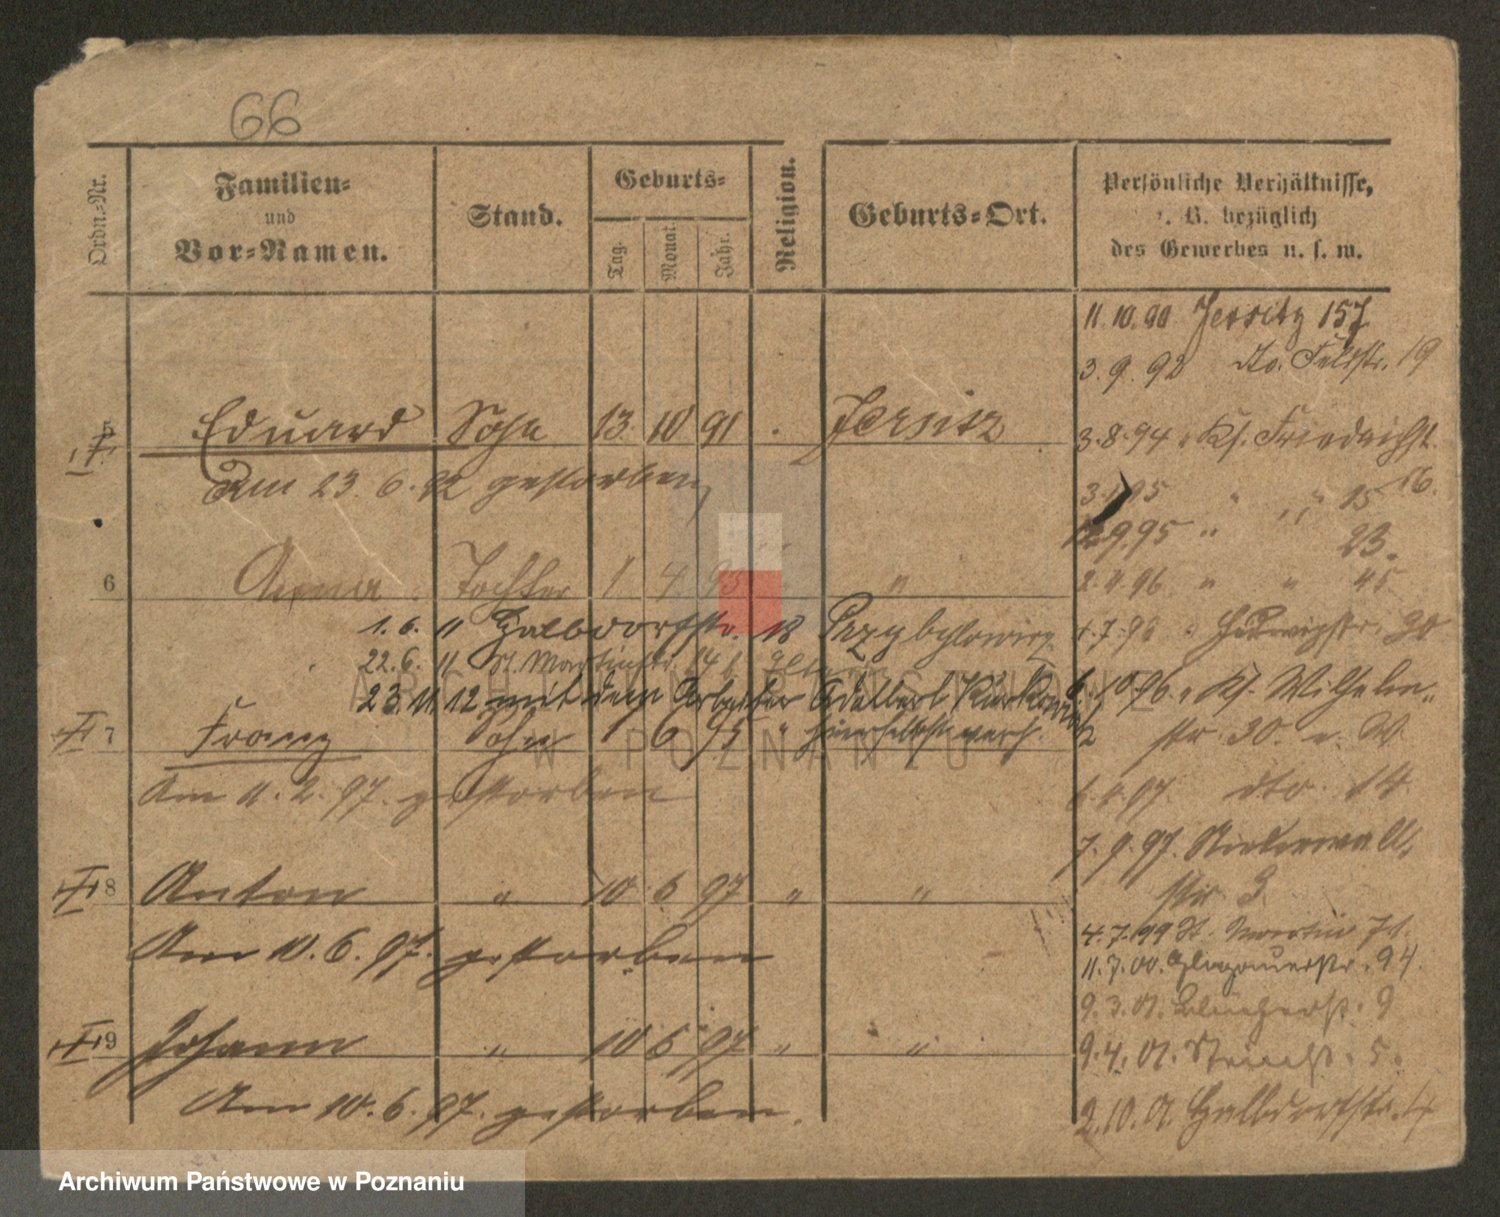 66
Ordn.-Nr.
Familien- und Vor-Namen.
Stand.
Geburts-
Tag.
Monat.
Jahr.
Religion.
Geburts-Ort.
Persönliche Verhältnisse,
z. B. bezüglich
des Gewerbes u. s. w.
11.10.90 Jersitz 157
3.9.92 do. Feldstr. 19
5 Eduard Sohn 13. 10 91 Jersitz
3.8.94 Ks. Friedrichst. 16.
Am 23.6.92 gestorben
3. 95 " " 15
12.9.95 " 23.
6 Anna Tochter 1 4. 95 " "
2.4.96 " " 45
1.6. 11 Halbdorfstr. 18
4.7.96 Hedwigstr. 30
22.6. 11 St. Martinstr.
23.11.12 mit dem Arbeiter Adalbert
6.10.96. Ks. Wilhelm-
str. 30.
7 Franz Sohn 1 6 95 "
Am 11.2.97. gestorben
6.4.97. dto. 14
7.9.97. Niederwall-
str. 3
8 Anton " 10 6 97 " "
Am 10.6.97. gestorben
4.7.99 St. Martin
11.7.00. Glogauerstr. 94.
9.3.01. Blücherst. 9
9 Johann " 10 6 97 " "
9.4.01. 5.
Am 10.6.97. gestorben.
2.10.01. Halbdorfstr.
ARCHIWUM PAŃSTWOWE
W POZNANIU
Archiwum Państwowe w Poznaniu